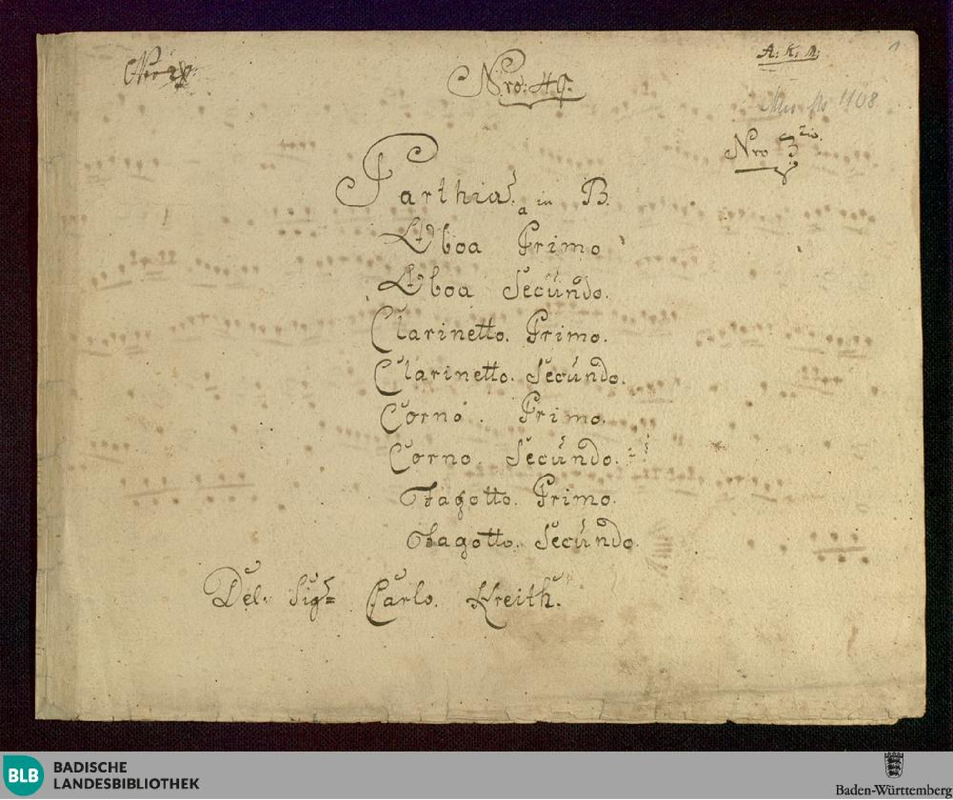 A: K: M:
1
Nro: 49:
Mus. Ms 1108
Nro 3tio.
Parthia. a in B.
Oboa Primo
Oboa Secundo.
Clarinetto. Primo.
Clarinetto. Secundo.
Corno. Primo.
Corno. Secundo.
Fagotto. Primo.
Fagotto. Secundo.
Del. Sigre Carlo. Kreith.
BLB BADISCHE
LANDESBIBLIOTHEK
Baden-Württemberg